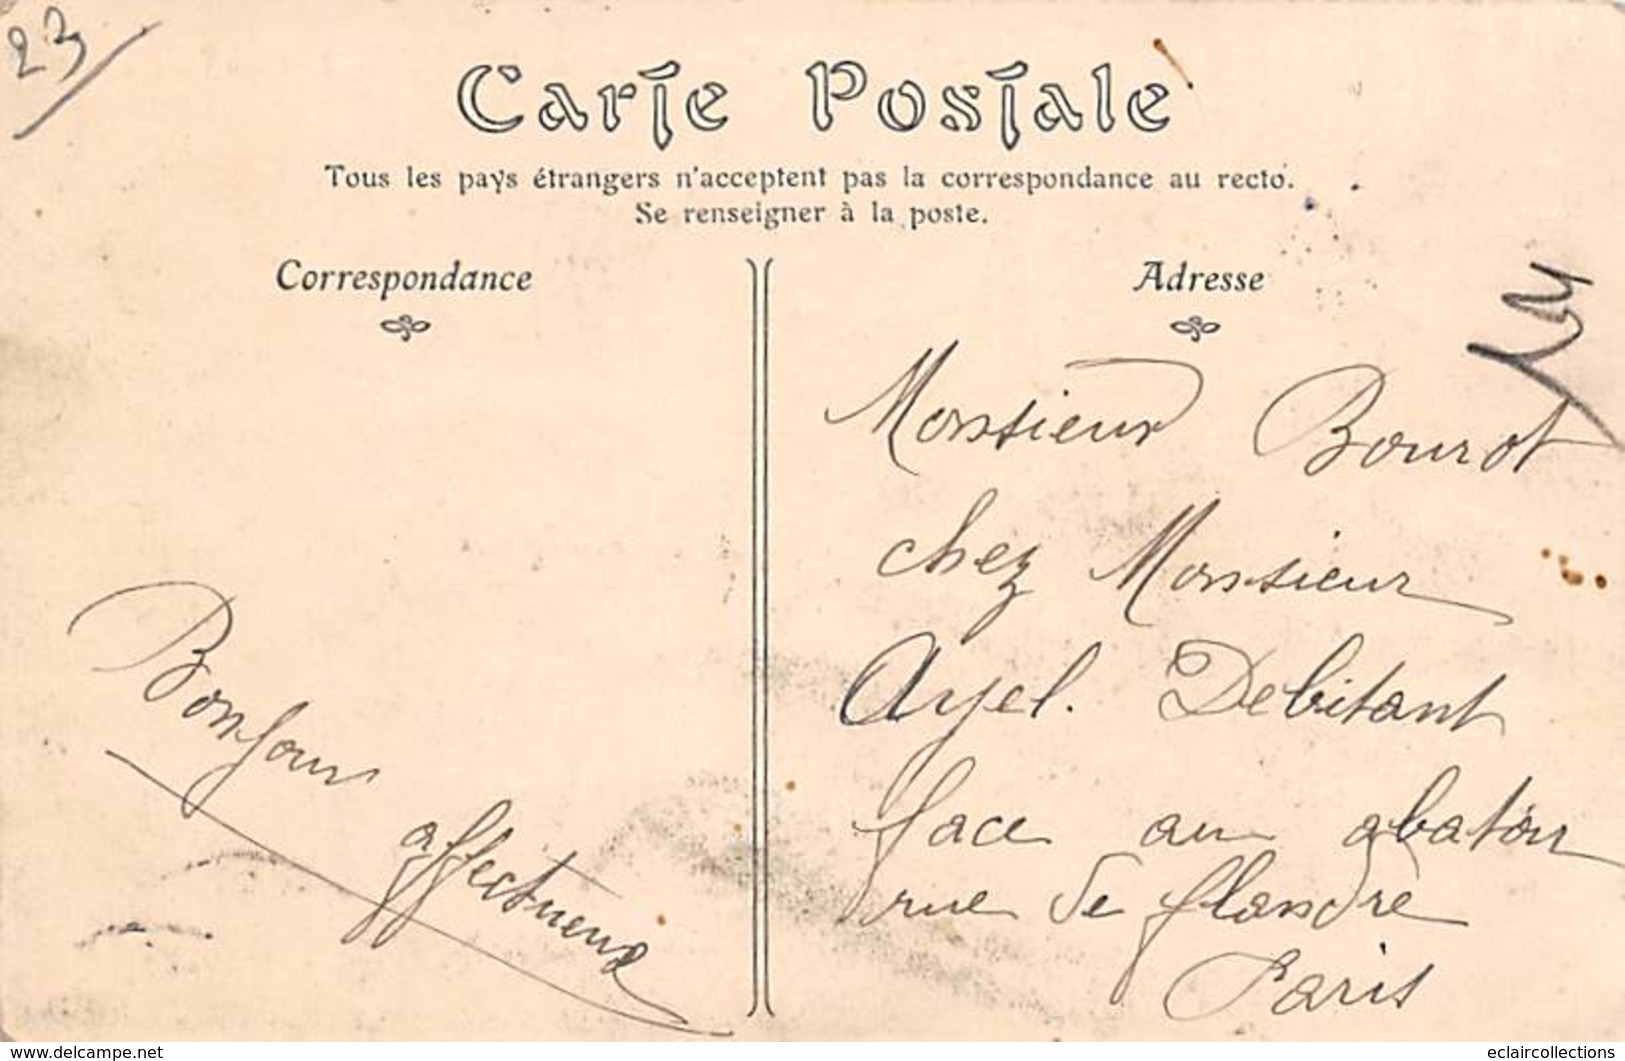 23
Carte Postale
Tous les pays étrangers n'acceptent pas la correspondance au recto.
Se renseigner à la poste.
Correspondance
Adresse
Bonjour
affectueux
Monsieur Bourot
chez Monsieur
Ayel. Debitant
face au abatoir
rue de flandre
Paris
www.delcampe.net
eclaircollections